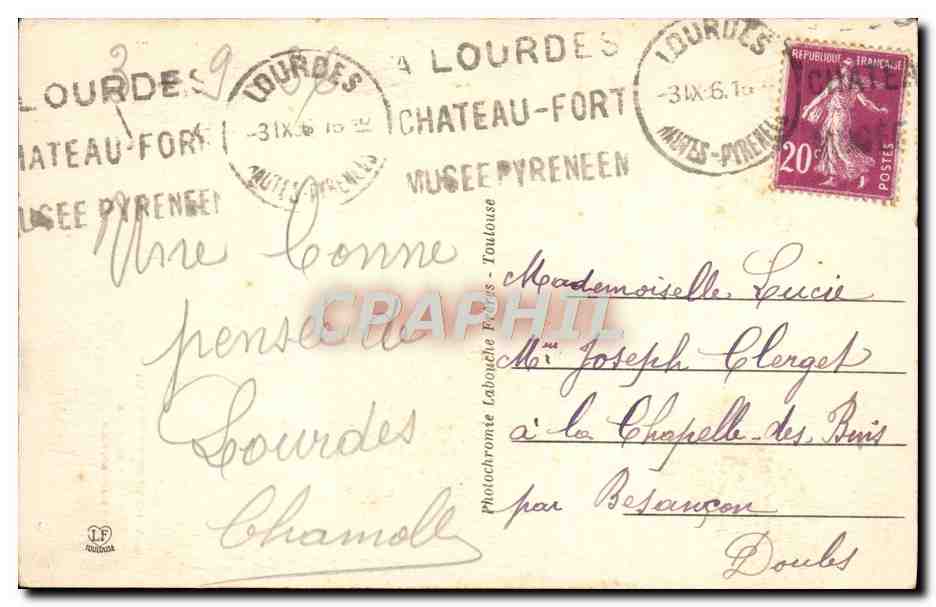 A LOURDES
CHATEAU-FORT
MUSEE PYRENEEN
LOURDES
-3 IX 36
HAUTES-PYRENEES
A LOURDES
CHATEAU-FORT
MUSEE PYRENEEN
LOURDES
-3 IX 36
HAUTES-PYRENEES
REPUBLIQUE FRANÇAISE
20c
POSTES
3 9 36
Une bonne
pensée de
Lourdes
Photochromie Labouche Frères - Toulouse
Mademoiselle Lucie
Mme Joseph Clerget
à la Chapelle-des-Buis
par Besançon
Doubs
CPAPHIL
LF
TOULOUSE